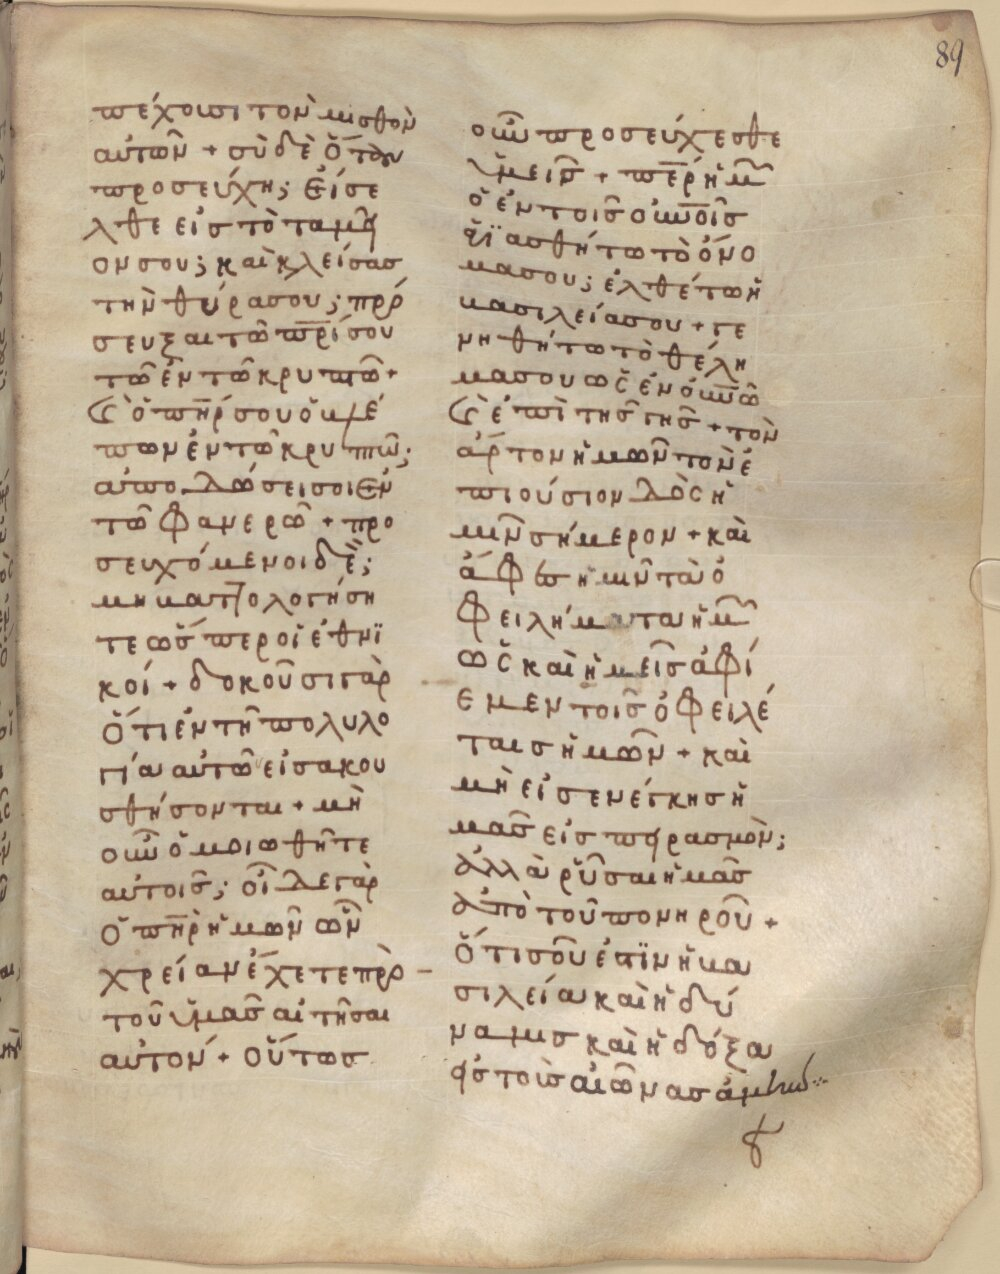 89
πέχουσι τὸν μισθὸν
αὐτῶν + σὺ δὲ ὅταν
προσεύχη; εἴσε
λθε εἰς τὸ ταμεῖ
ον σου; καὶ κλείσας
τὴν θύρα σου; πρό
σευξαι τῶ πρί σου
τῶ ἐν τῶ κρυπτῶ +
καὶ ὁ πηρ σου ὁ βλέ
πων ἐν τῶ κρυπτῶ;
ἀποδώσει σοι ἐν
τῶ φανερῶ + προ
σευχόμενοι δὲ;
μὴ βαττολογήση
τε ὥσπερ οἱ ἐθνϊ
κοί + δοκοῦσι γὰρ
ὅτι ἐν τῆ πολυλο
γία αὐτῶ εἰσακου
σθήσονται + μὴ
οὖν ὁμοιωθῆτε
αὐτοῖς; οἶδε γὰρ
ὁ πηρ ἡμῶν ὧν
χρείαν ἔχετε πρὸ
τοῦ ὑμᾶς αἰτῆσαι
αὐτόν + οὕτως
οὖν προσεύχεσθε
ὑμεῖς + περ ἡμῶν
ὁ ἐν τοῖς οὐνοῖς
ἁγϊασθήτω τὸ ὄνο
μα σου; ἐλθέτω ἡ
βασιλεία σου + γε
νηθήτω τὸ θέλη
μα σου ὡς ἐν οὐνῶ
καὶ ἐπὶ τῆς γῆς + τὸν
ἄρτον ἡμῶν τὸν ἐ
πιούσιον δὸς ἡ
μῖν σήμερον + καὶ
ἄφες ἡμῖν τὰ ὀ
φειλήματα ἡμῶν
ὡς καὶ ἡμεῖς ἀφί
εμεν τοῖς ὀφειλέ
ταις ἡμῶν + καὶ
μὴ εἰσενέγκης ἡ
μᾶς εἰς πειρασμόν;
ἀλλὰ ῥῦσαι ἡμᾶς
ἀπὸ τοῦ πονηροῦ +
ὅτι σοῦ ἐστϊν ἡ βα
σιλεία καὶ ἡ δύ
ναμις καὶ ἡ δόξα
εἰς τοὺς αἰῶνας ἀμήν